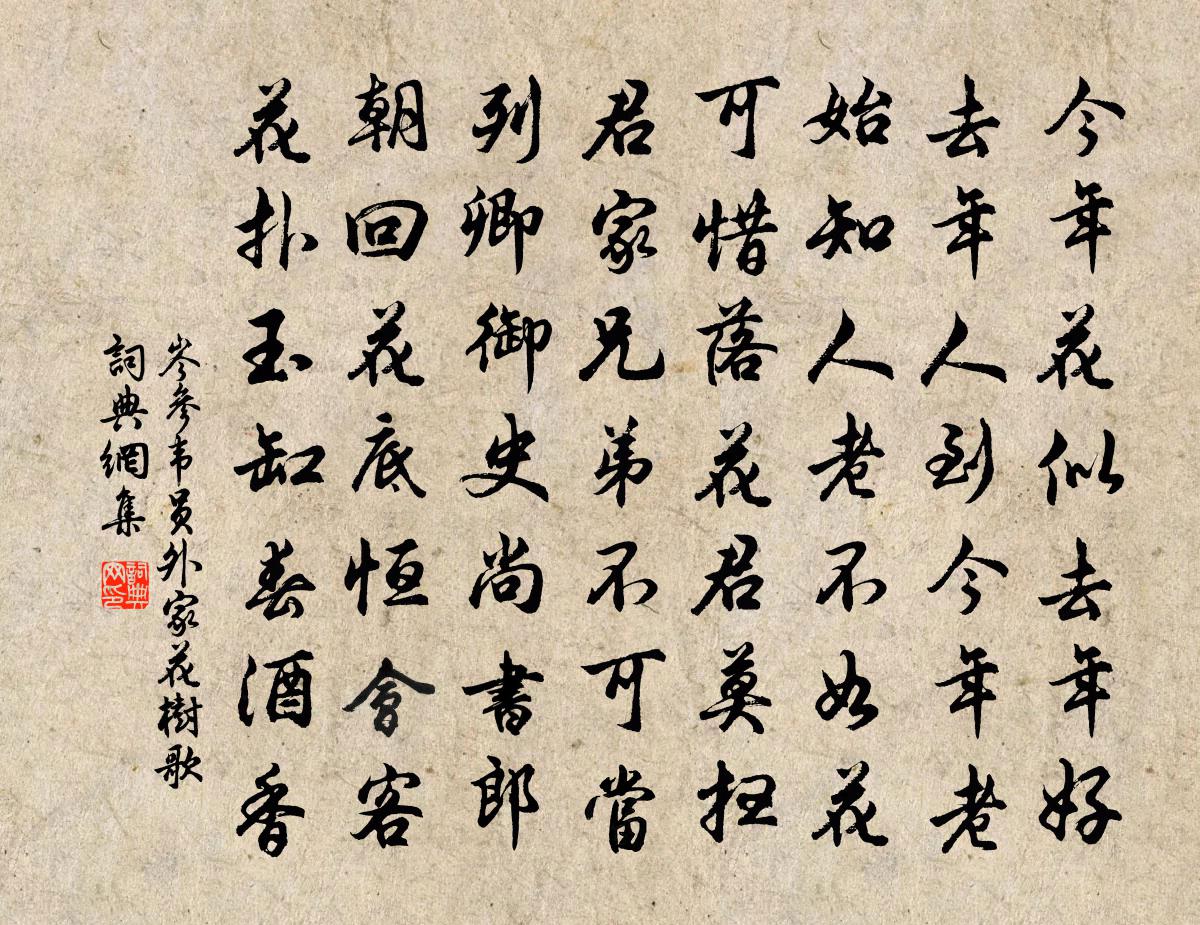 今年花似去年好
去年人到今年老
始知人老不如花
可惜落花君莫扫
君家兄弟不可當
列卿御史尚書郎
朝回花底恒會客
花扑玉缸春酒香
岑參韦员外家花樹歌
詞典網集
詞典网印